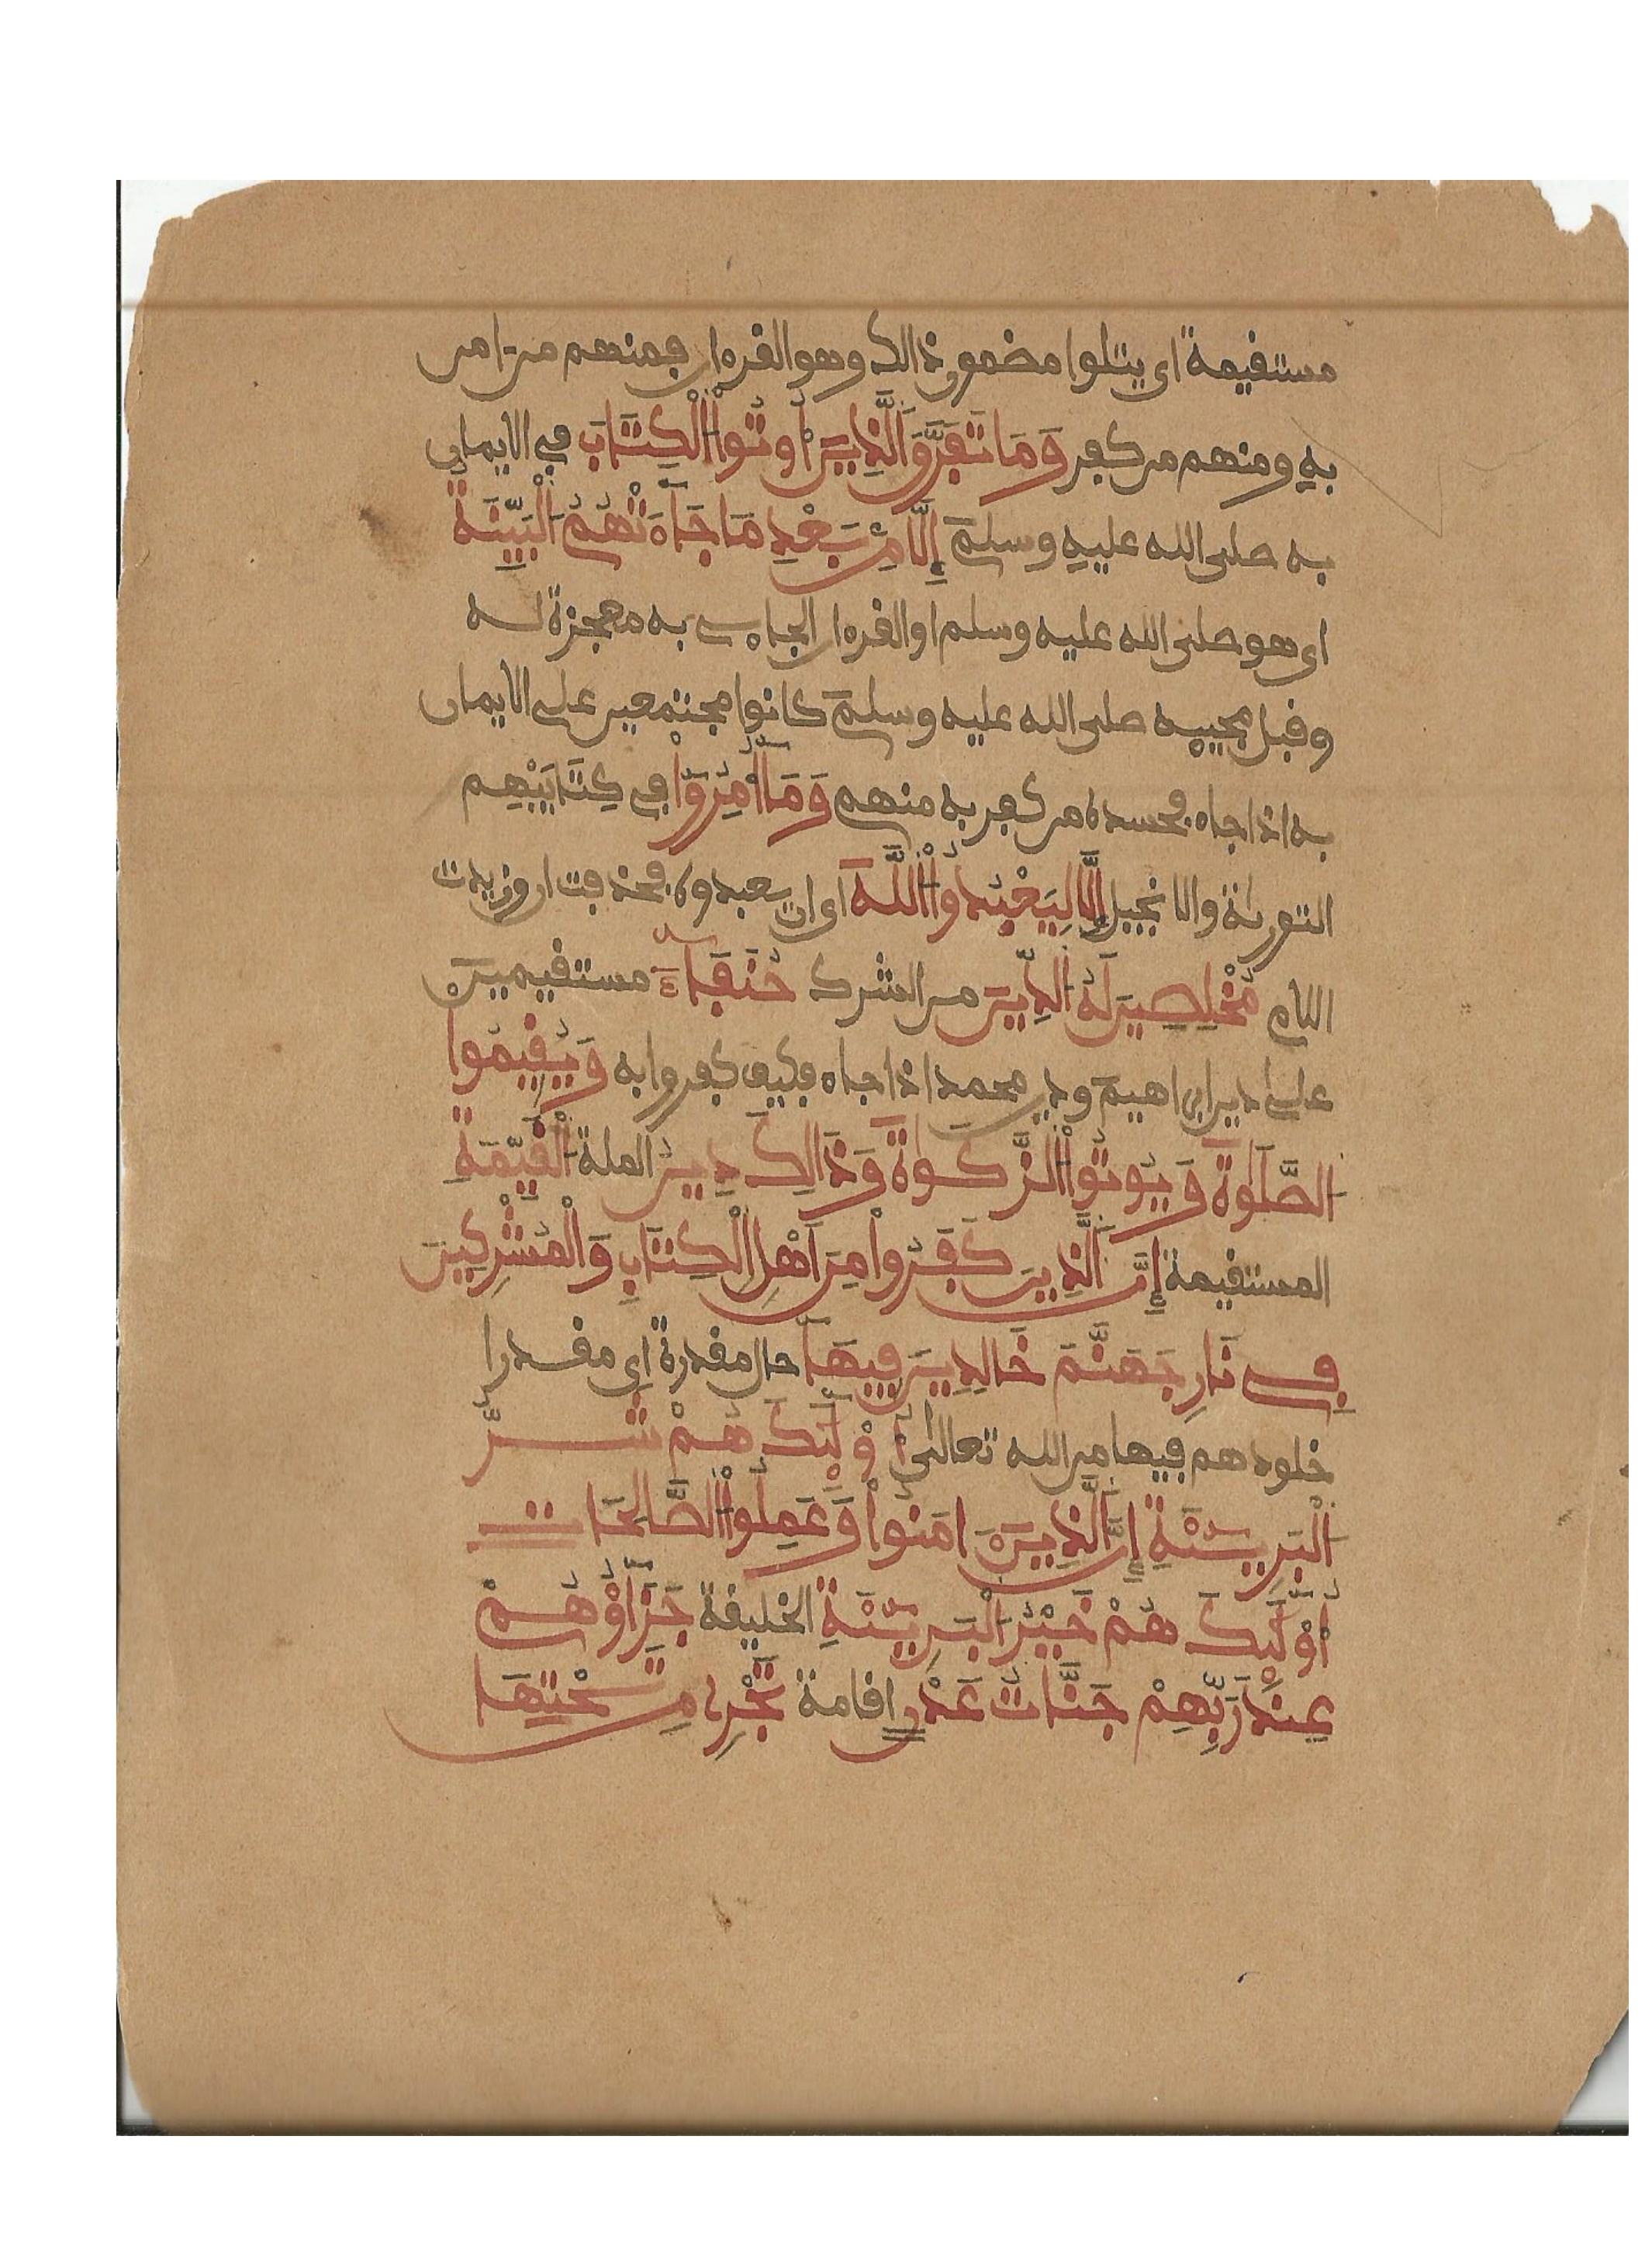 مستقيمة اى يتلوا مضمون ذالك وهو القرءان فمنهم من امن
به ومنهم من كفر وَمَا تَفَرَّقَ اَلَّذِينَ أُوتُواْ اُلْكِتَابَ في الايمان
به صلى الله عليه وسلم إِلَّا مِنْ بَعْدِ مَا جَآءَتْهُمُ اُلْبَيِّنَةُ
اى هو صلى الله عليه وسلم او القرءان الجاءى به معجزة له
وقبل مجييه صلى الله عليه وسلم كانوا مجتمعين على الايمان
به اذا جاء فحسده من كفر به منهم وَمَا أُمِرُوٓاْ في كِتَابَيْهِم
التورىة والانجيل إِلَّا لِيَعْبُدُواْ اُللَّهَ اى ان يعبدوه فحذفت ان وزيدت
اللام مُخْلِصِينَ لَهُ اُلدِّينَ من الشرك حُنَفَآءَ مستقيمين
على دين ابراهيم ودين محمد اذا جاء فكيف كفروا به وَيُقِيمُوا
اُلصَّلَوٰةَ وَيُوتُواْ اُلزَّكَوٰةَ وَذَالِكَ دِينُ الملة اُلْقَيِّمَةِ
المستقيمة إِنَّ اَلَّذِينَ كَفَرُواْ مِنَ اَهْلِ اِلْكِتَابِ وَالْمُشْرِكِينَ
فِي نَارِ جَهَنَّمَ خَالِدِينَ فِيهَآ حال مقدرة اى مقدرا
خلودهم فيها من الله تعالى أُوْلَٰٓئِكَ هُمْ شَرُّ
اُلْبَرِيٓئَةِ إِنَّ اَلَّذِينَ ءامَنُواْ وَعَمِلُواْ اُلصَّالِحَاتِ
أُوْلَٰٓئِكَ هُمْ خَيْرُ اُلْبَرِيٓئَةِ الخليقة جَزَآؤُهُمْ
عِندَ رَبِّهِمْ جَنَّاتُ عَدْنٍ اقامة تَجْرِى مِن تَحْتِهَا